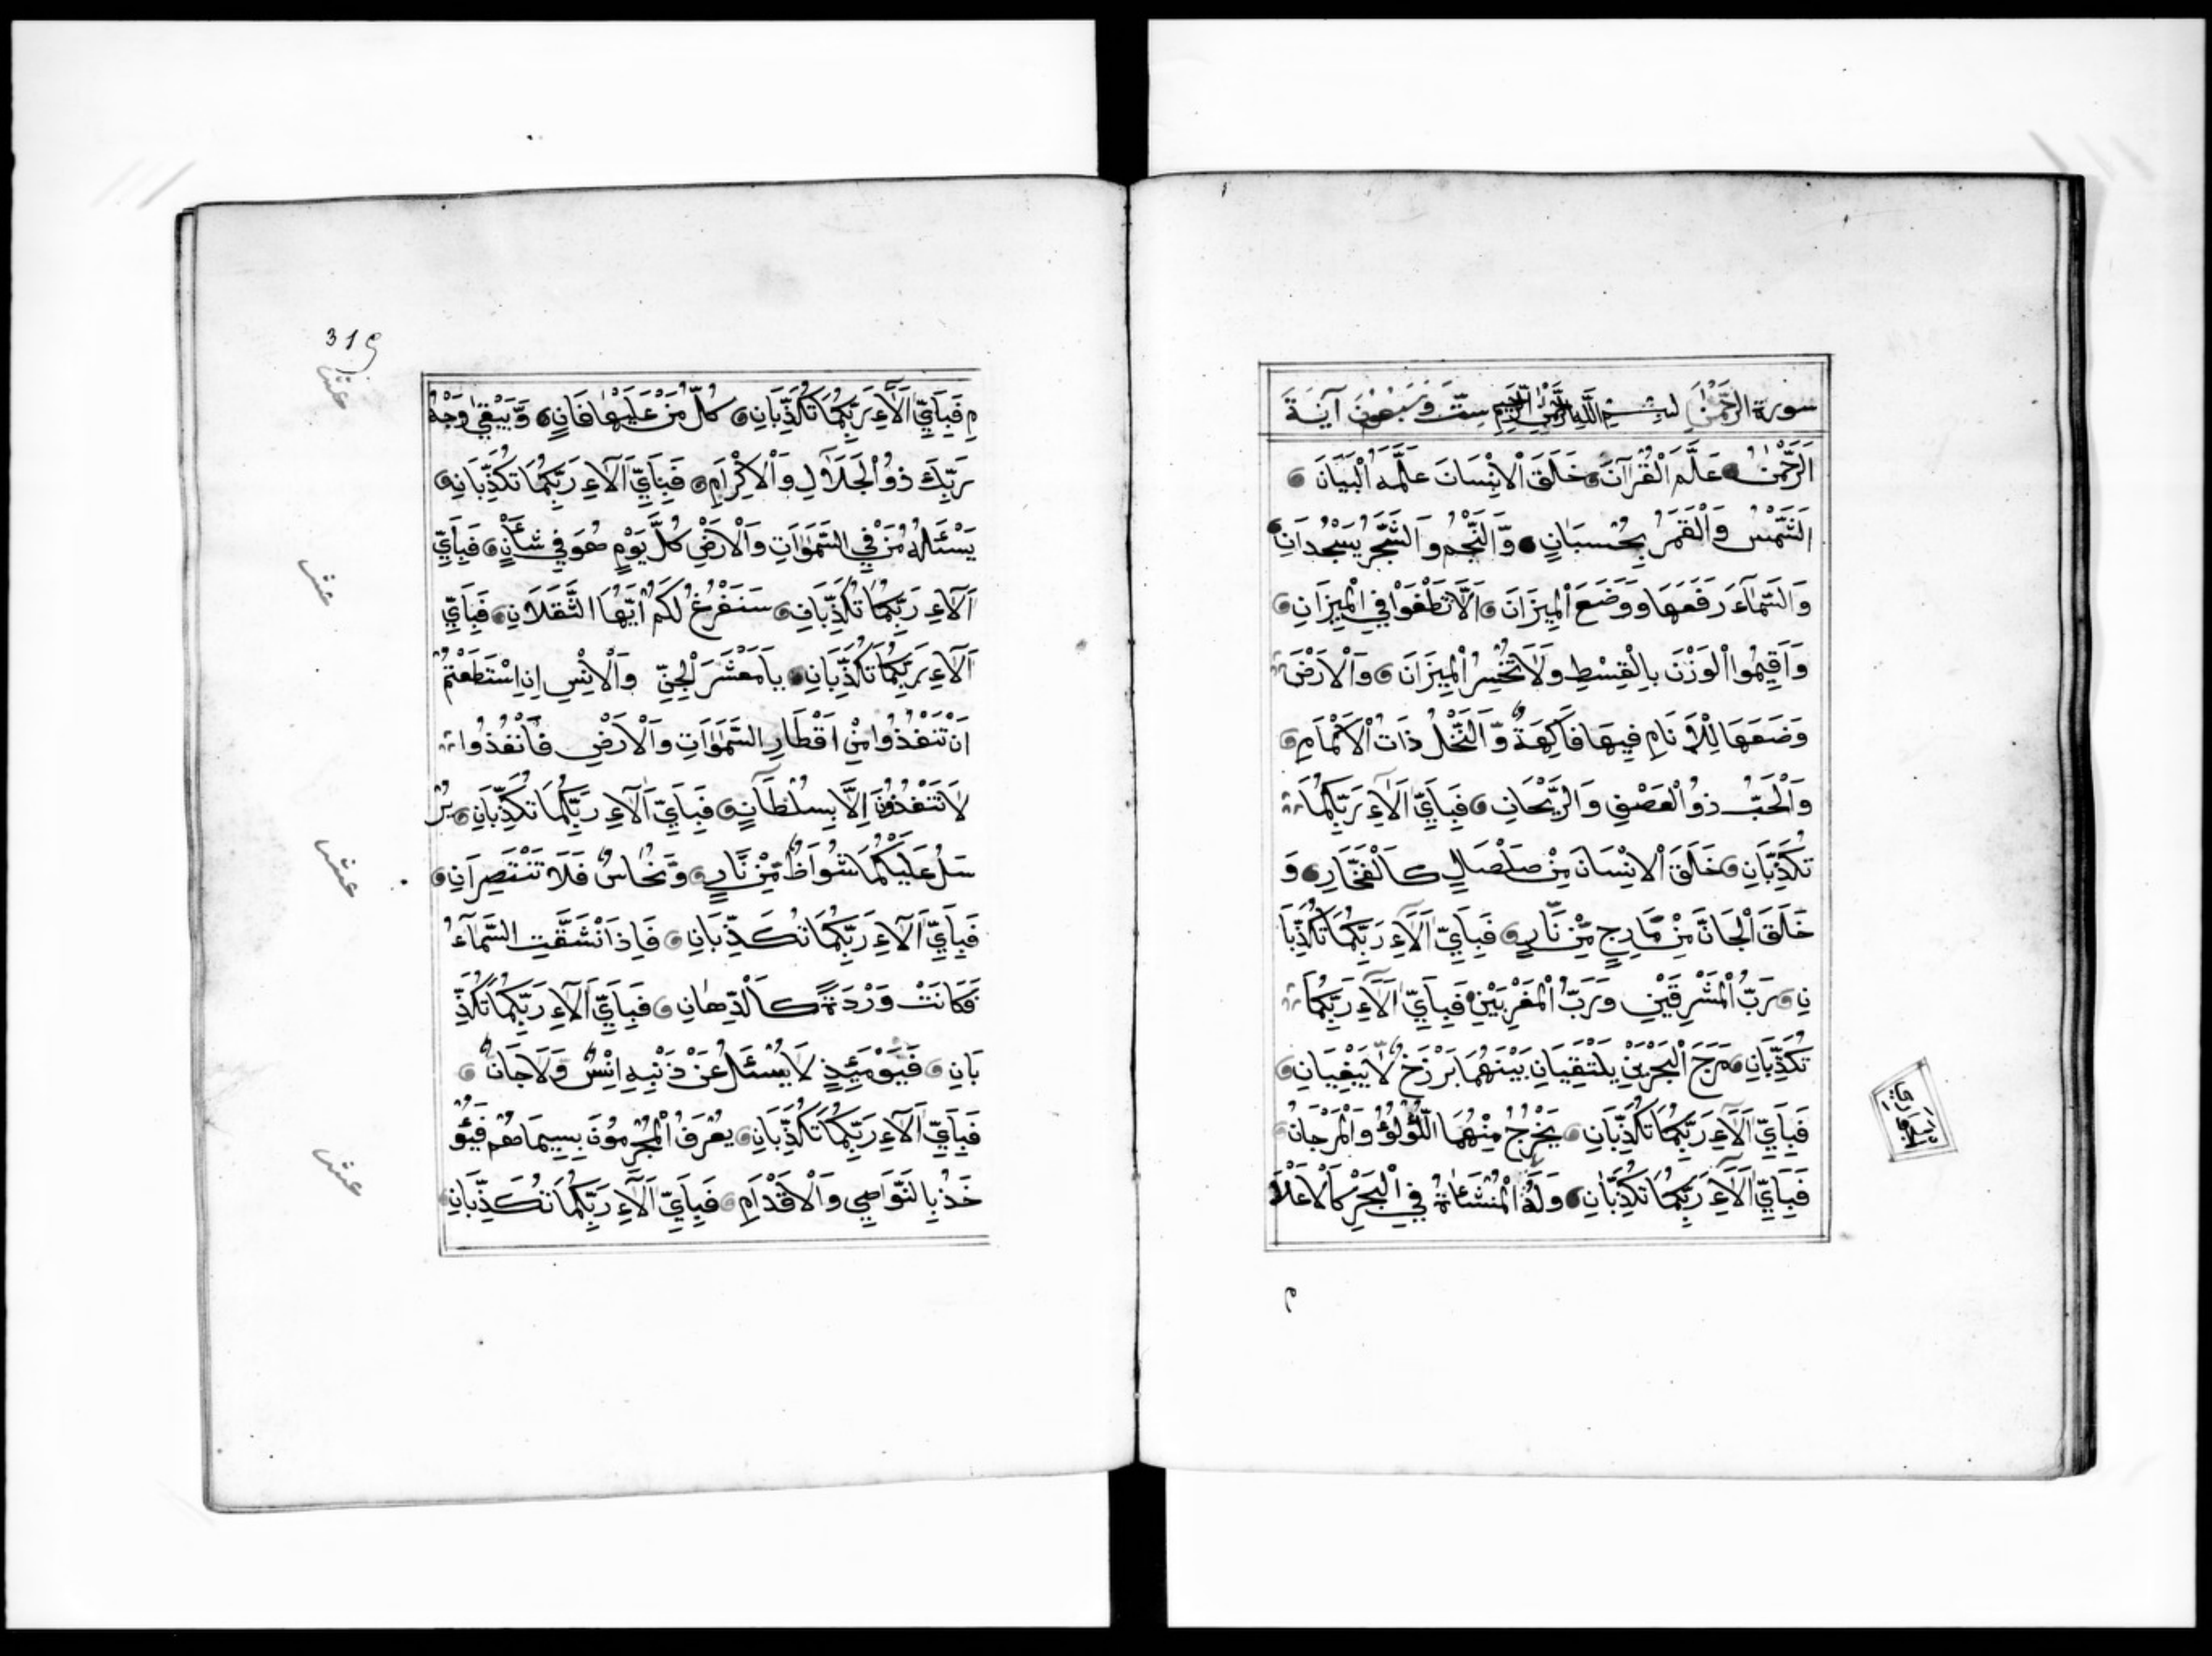 سورة الرَّحْمٰنِ بِسْمِ اللَّهِ الرَّحْمٰنِ الرَّحِيمِ سِتٌّ وَسَبْعُونَ آيَةً
اَلرَّحْمٰنُ عَلَّمَ الْقُرْآنَ خَلَقَ الْاِنْسَانَ عَلَّمَهُ الْبَيَانَ
اَلشَّمْسُ وَالْقَمَرُ بِحُسْبَانٍ وَّالنَّجْمُ وَالشَّجَرُ يَسْجُدَانِ
وَالسَّمَآءَ رَفَعَهَا وَوَضَعَ الْمِيزَانَ اَلَّا تَطْغَوْا فِي الْمِيزَانِ
وَاَقِيمُوا الْوَزْنَ بِالْقِسْطِ وَلَا تُخْسِرُ الْمِيزَانَ وَالْاَرْضَ
وَضَعَهَا لِلْاَنَامِ فِيهَا فَاكِهَةٌ وَّالنَّخْلُ ذَاتُ الْاَكْمَامِ
وَالْحَبُّ ذُو الْعَصْفِ وَالرَّيْحَانِ فَبِاَيِّ اٰلَآءِ رَبِّكُمَا
تُكَذِّبَانِ خَلَقَ الْاِنْسَانَ مِنْ صَلْصَالٍ كَالْفَخَّارِ وَ
خَلَقَ الْجَانَّ مِنْ مَّارِجٍ مِّنْ نَّارٍ فَبِاَيِّ اٰلَآءِ رَبِّكُمَا تُكَذِّبَا
نِ رَبُّ الْمَشْرِقَيْنِ وَرَبُّ الْمَغْرِبَيْنِ فَبِاَيِّ اٰلَآءِ رَبِّكُمَا
تُكَذِّبَانِ مَرَجَ الْبَحْرَيْنِ يَلْتَقِيَانِ بَيْنَهُمَا بَرْزَخٌ لَّا يَبْغِيَانِ
فَبِاَيِّ اٰلَآءِ رَبِّكُمَا تُكَذِّبَانِ يَخْرُجُ مِنْهُمَا اللُّؤْلُؤُ وَالْمَرْجَانُ
فَبِاَيِّ اٰلَآءِ رَبِّكُمَا تُكَذِّبَانِ وَلَهُ الْمُنْشَئَاةُ فِي الْبَحْرِ كَالْاَعْلَا
319
مِ فَبِاَيِّ اٰلَآءِ رَبِّكُمَا تُكَذِّبَانِ كُلُّ مَنْ عَلَيْهَا فَانٍ وَّيَبْقٰى وَجْهُ
رَبِّكَ ذُو الْجَلَالِ وَالْاِكْرَامِ فَبِاَيِّ اٰلَآءِ رَبِّكُمَا تُكَذِّبَانِ
يَسْئَلُهُ مَنْ فِي السَّمٰوَاتِ وَالْاَرْضِ كُلَّ يَوْمٍ هُوَ فِي شَأْنٍ فَبِاَيِّ
اٰلَآءِ رَبِّكُمَا تُكَذِّبَانِ سَنَفْرُغُ لَكُمْ اَيُّهَا الثَّقَلَانِ فَبِاَيِّ
اٰلَآءِ رَبِّكُمَا تُكَذِّبَانِ يَامَعْشَرَ الْجِنِّ وَالْاِنْسِ اِنِ اسْتَطَعْتُمْ
اَنْ تَنْفُذُوا مِنْ اَقْطَارِ السَّمٰوَاتِ وَالْاَرْضِ فَانْفُذُوا
لَا تَنْفُذُونَ اِلَّا بِسُلْطَانٍ فَبِاَيِّ اٰلَآءِ رَبِّكُمَا تُكَذِّبَانِ يُرْ
سَلُ عَلَيْكُمَا شُوَاظٌ مِّنْ نَّارٍ وَّنُحَاسٌ فَلَا تَنْتَصِرَانِ
فَبِاَيِّ اٰلَآءِ رَبِّكُمَا تُكَذِّبَانِ فَاِذَا نْشَقَّتِ السَّمَآءُ
فَكَانَتْ وَرْدَةً كَالدِّهَانِ فَبِاَيِّ اٰلَآءِ رَبِّكُمَا تُكَذِّ
بَانِ فَيَوْمَئِذٍ لَا يُسْئَلُ عَنْ ذَنْبِهِ اِنْسٌ وَلَا جَانٌّ
فَبِاَيِّ اٰلَآءِ رَبِّكُمَا تُكَذِّبَانِ يُعْرَفُ الْمُجْرِمُونَ بِسِيمَاهُمْ فَيُؤْ
خَذُ بِالنَّوَاصِي وَالْاَقْدَامِ فَبِاَيِّ اٰلَآءِ رَبِّكُمَا تُكَذِّبَانِ
عشر
عشر
عشر
عشر